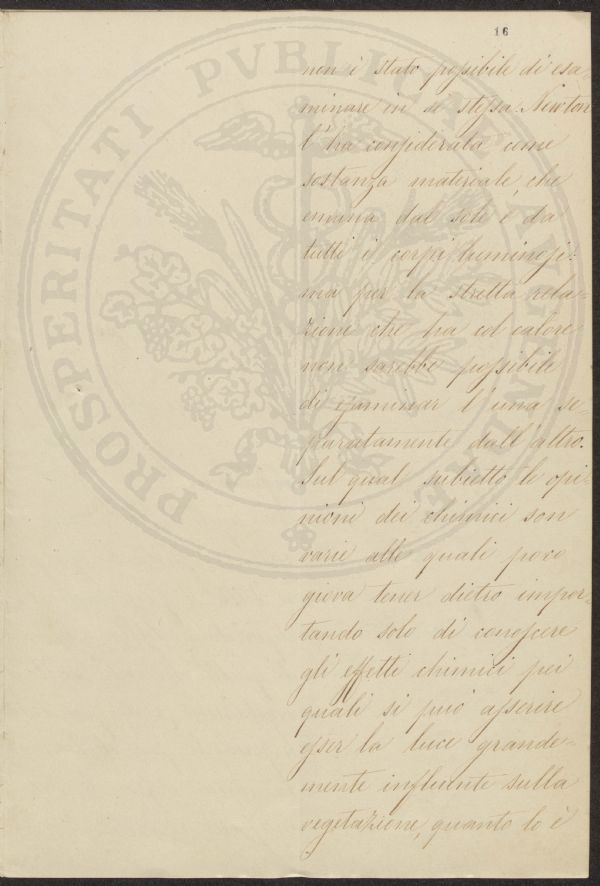 16
non è stato possibile di esa-
minare in sè stessa. Newton
l'ha considerata come
sostanza materiale, che
emana dal sole e da
tutti i corpi luminosi:
ma per la stretta rela-
zione che ha col calore
non sarebbe possibile
di esaminar l'una se-
paratamente dall'altro.
Sul qual subietto le opi-
nioni dei chimici son
varie alle quali poco
giova tener dietro impor-
tando solo di conoscere
gli effetti chimici pei
quali si può asserire
esser la luce grande-
mente influente sulla
vegetazione, quanto lo è
PROSPERITATI PVBLICAE AVGENDAE